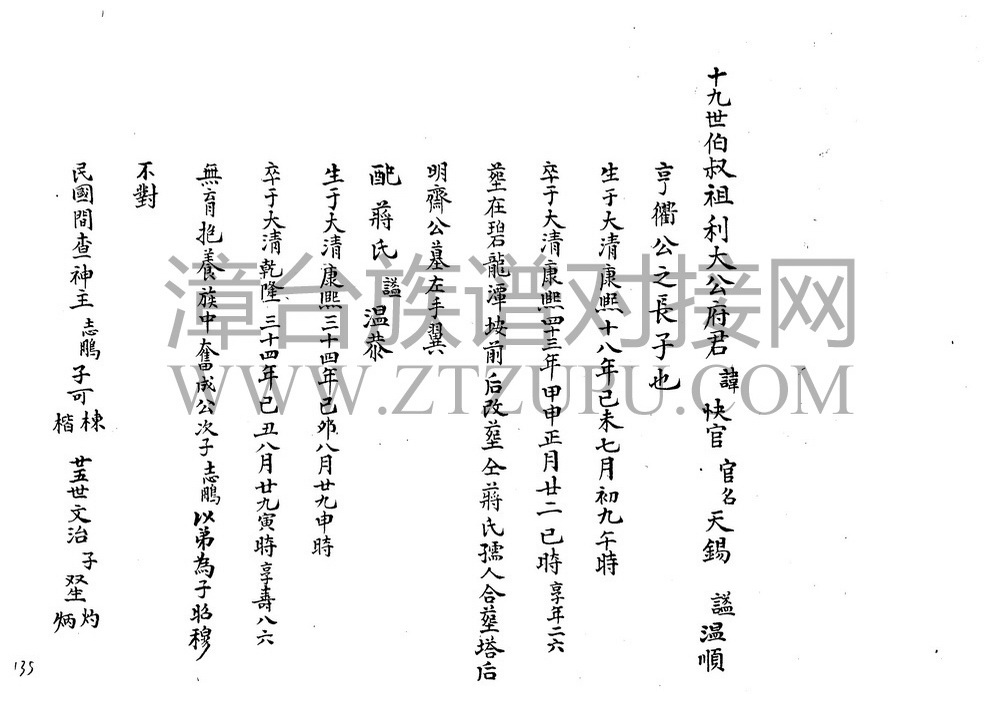 十九世伯叔祖利大公府君 諱 快官 官名 天錫 謚 温順
亨衢公之長子也
生于大清康熙十八年己未七月初九午時
卒于大清康熙四十三年甲申正月廿二巳時 享年二六
塟在碧龍潭坡前后改塟仝蔣氏孺人合塟塔后
明齋公墓左手翼
配蔣氏 謚 温恭
生于大清康熙三十四年己夘八月廿九申時
卒于大清乾隆三十四年己丑八月廿九寅時 享壽八六
無育抱養族中奮成公次子志鵬以弟為子昭穆
不對
民國間查神主志鵬子可棟楷 廿五世文治 子 双生 灼炳
135
漳台族谱对接网
WWW.ZTZUPU.COM